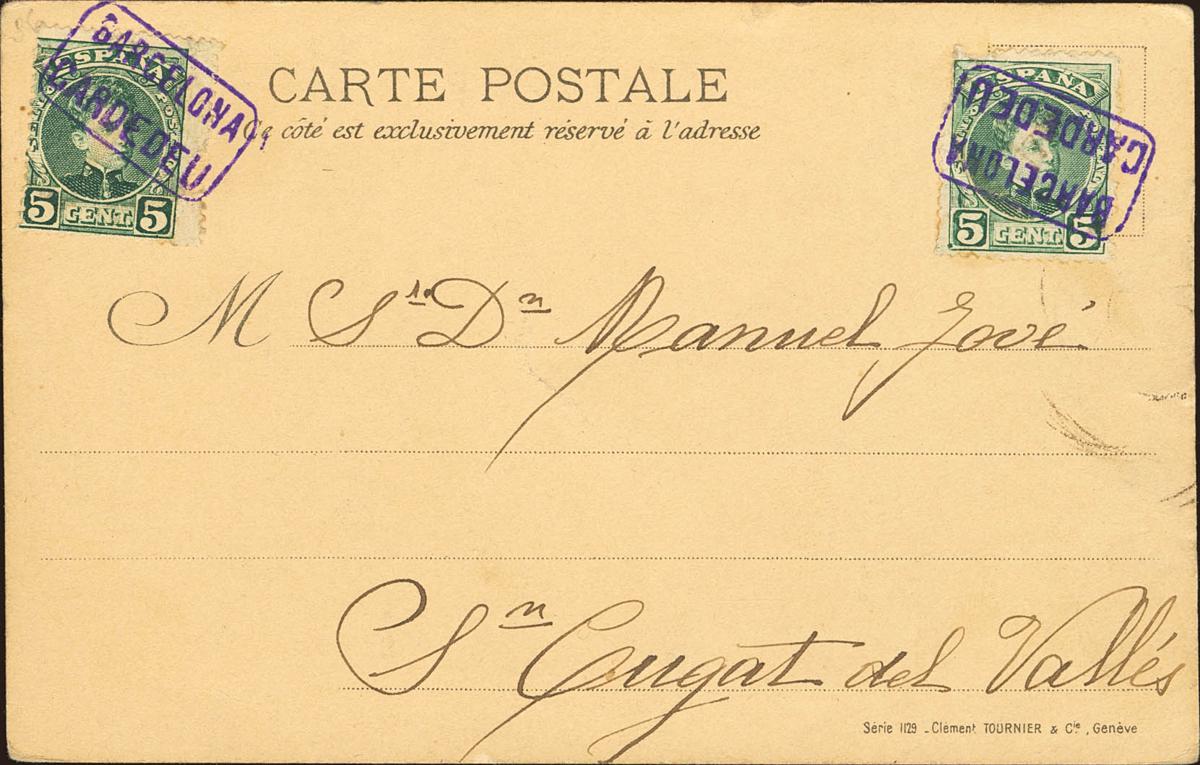 CARTE POSTALE
Ce côté est exclusivement réservé à l'adresse
ESPAÑA
5 CENT. 5
BARCELONA
CARDEDEU
ESPAÑA
5 CENT. 5
BARCELONA
CARDEDEU
M Sr. Dn Manuel Jové
Sn Cugat del Vallés
Série 1129 - Clément TOURNIER & Cie, Genève